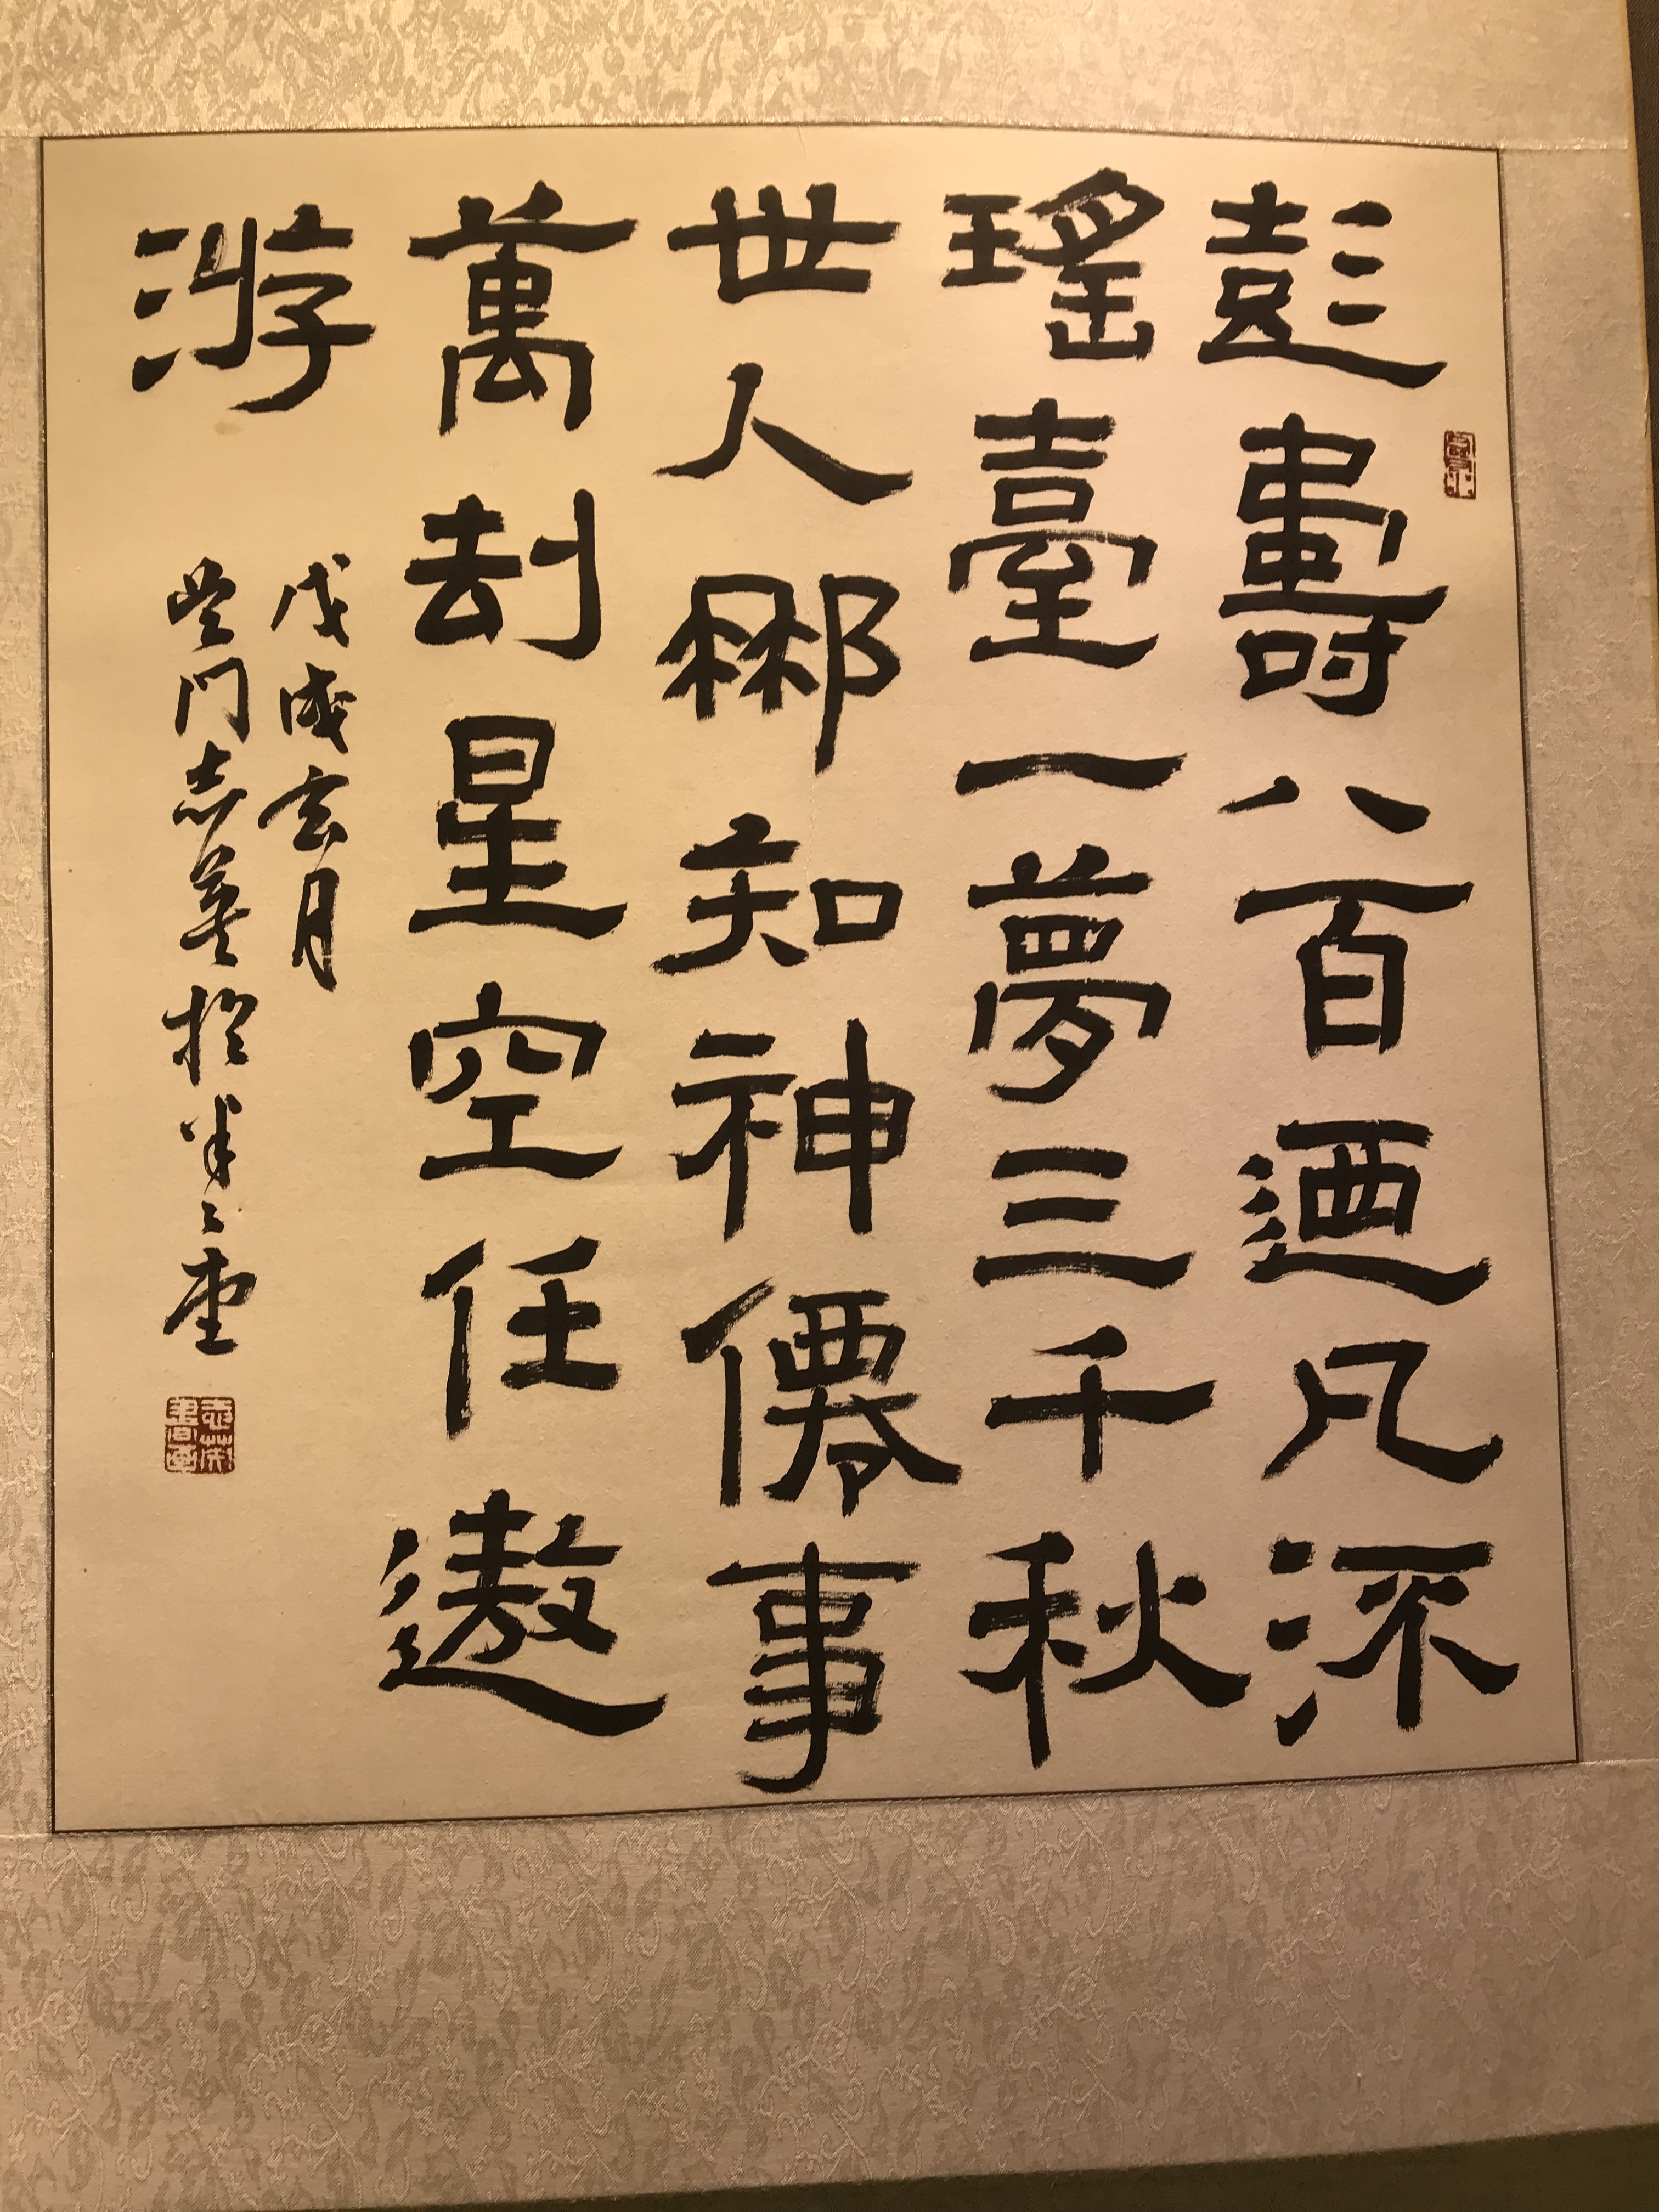 彭壽八百迺凡流
瑤臺一夢三千秋
世人那知神僊事
萬劫星空任遨
游
戊戌玄月
門志英於半〻堂